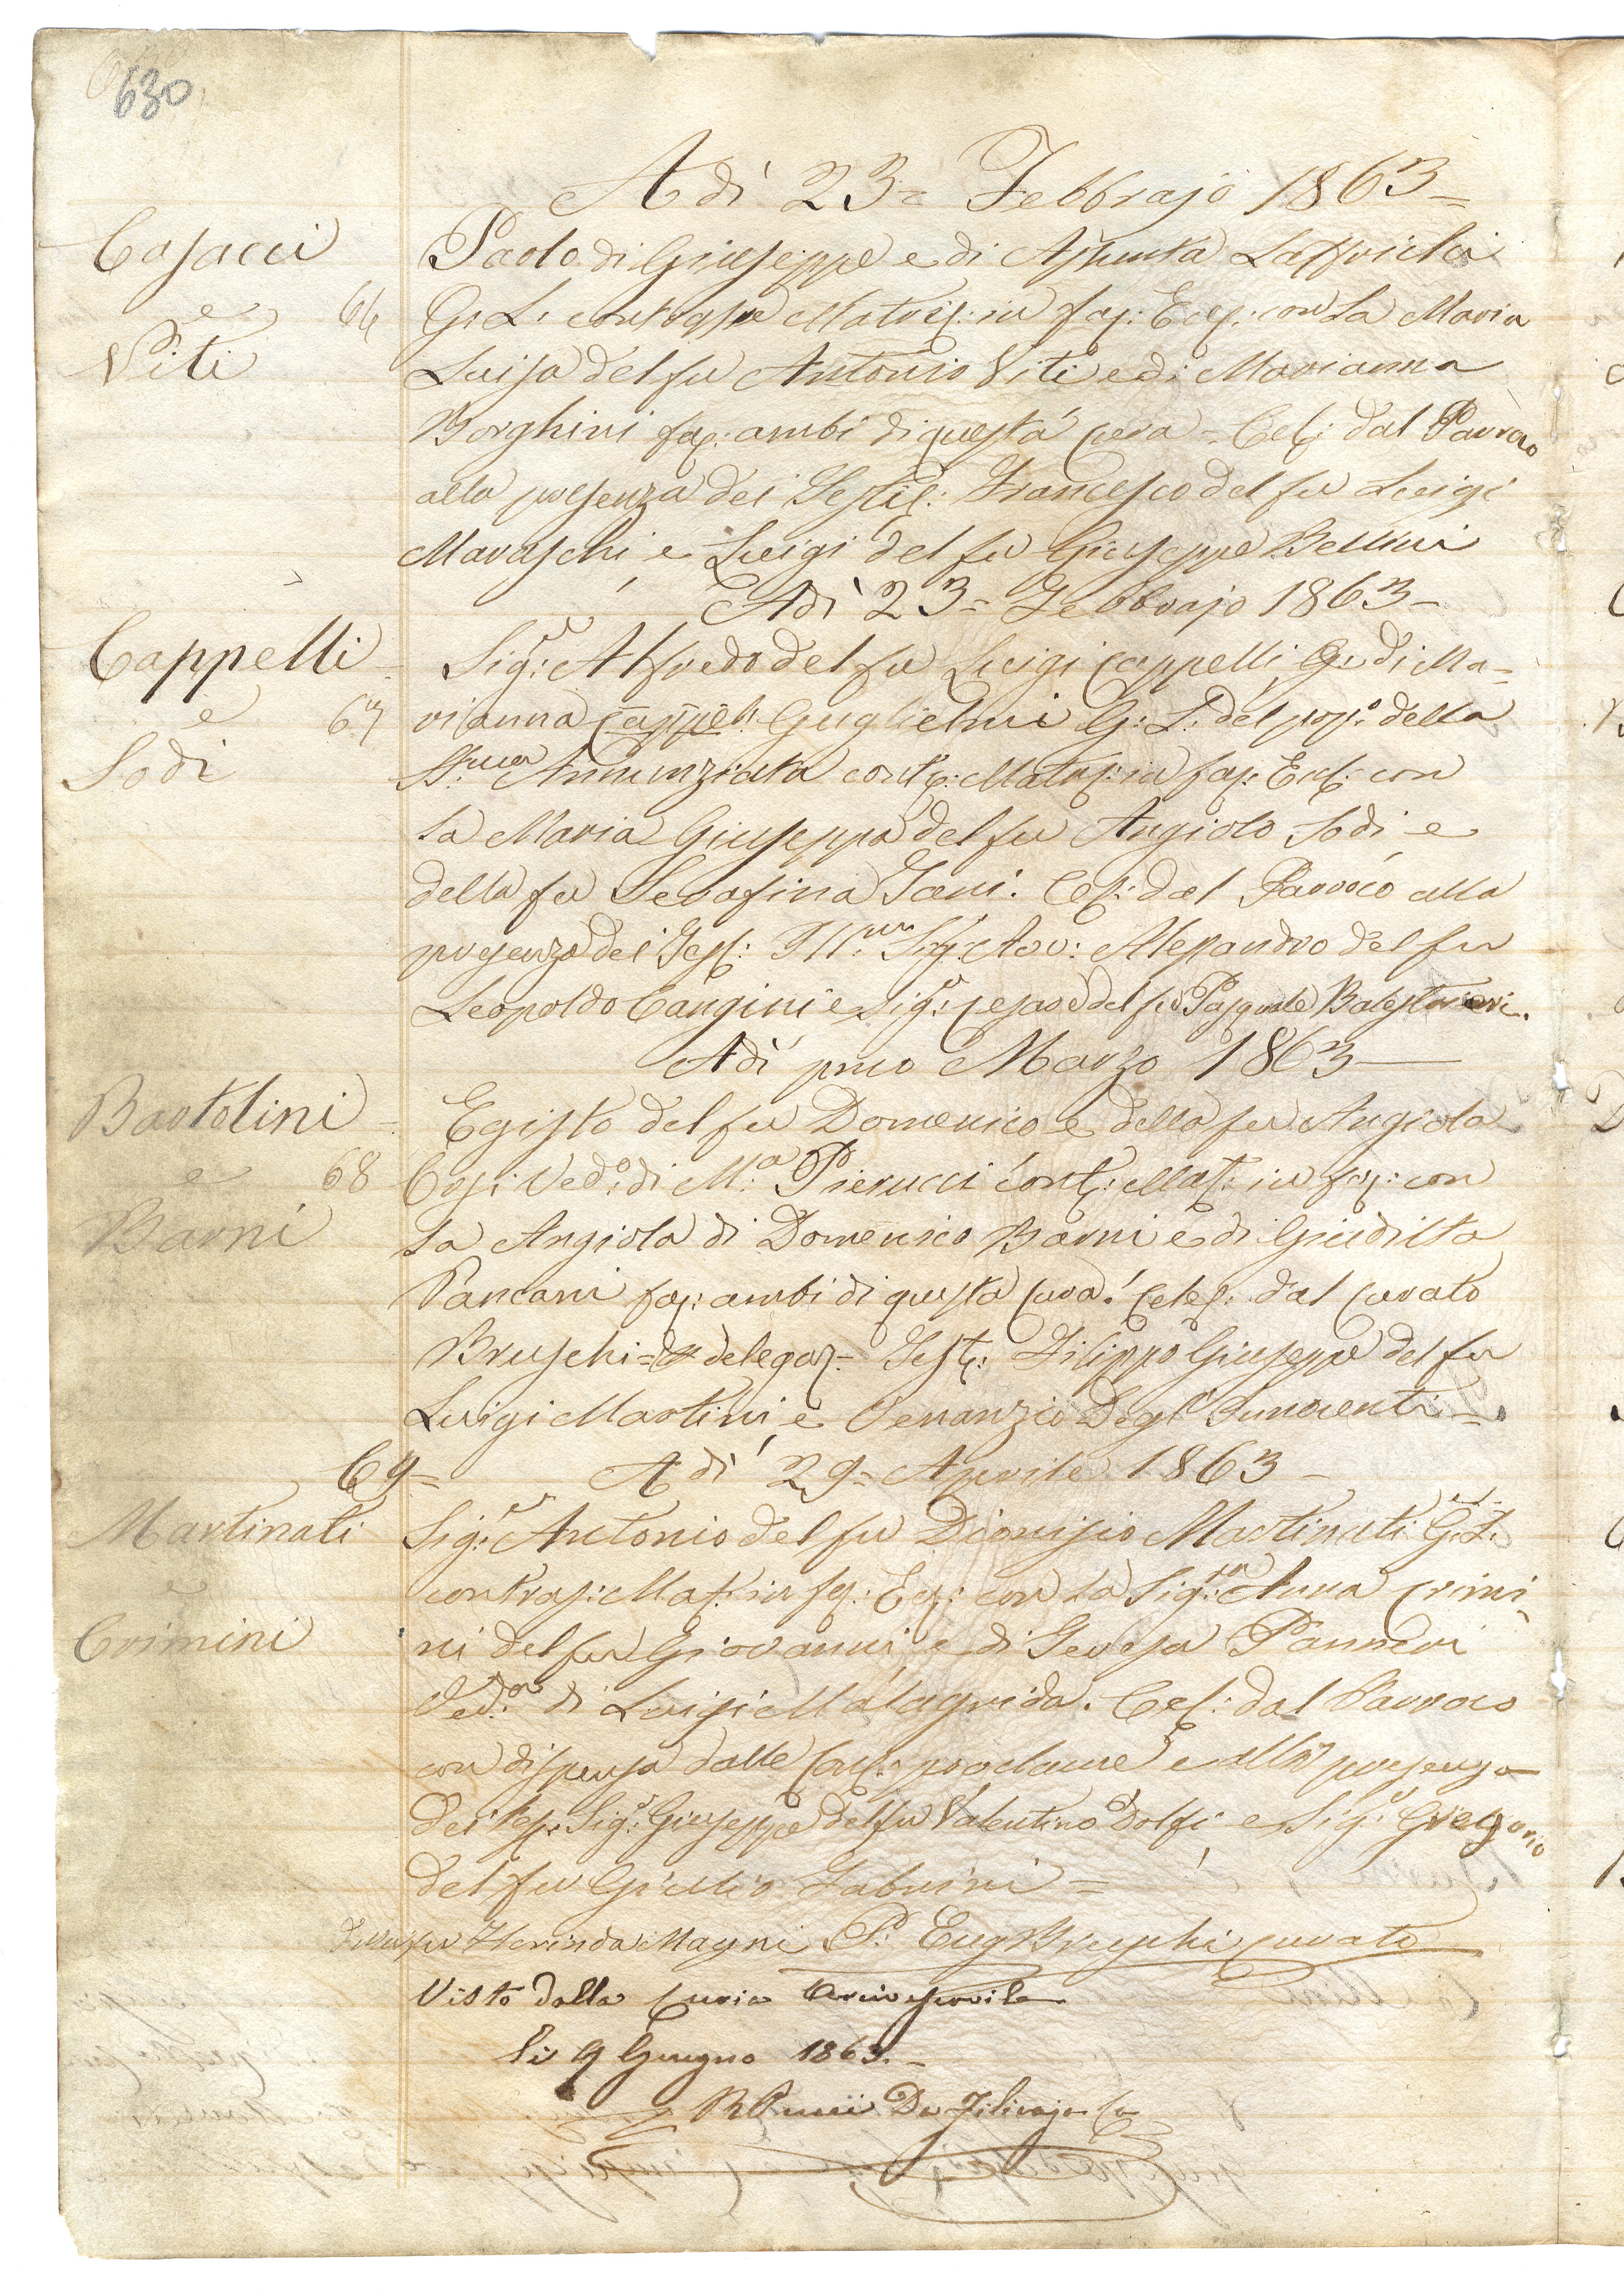 630
Adì 23= Febbrajo 1863=
Casacci Paolo di Giuseppe e di Assunta
e 66 G: L: contrasse Matris: in fac: Eccl: con la Maria
Viti Luisa del fu Antonio Viti e di Marianna
Borghini fac: ambi di questa cura = Cel: dal Parroco
alla presenza dei Testi: Francesco del fu Luigi
Maraschi e Luigi del fu Giuseppe Bellini
Adì 23= Febbrajo 1863=
Cappelli Sig:r Alfredo del fu Luigi Cappelli, e di Ma=
e 67 rianna Cappeli Guglielmi G: L: del pop:o della
Sodi SS:ma Annunziata cont: Mat: in fac: Eccl: con
la Maria Giuseppa del fu Angiolo Sodi e
della fu Serafina Cel: dal Parroco alla
presenza dei Test: Ill:mo Sig: Avv: Alessandro del fu
Leopoldo Cangini e Sig:r Cesare del fu Pasquale Balestrieri.
Adì pmo Marzo 1863
Bartolini Egisto del fu Domenico e della fu Angiola
e 68 Cosi: Ved:o di M:a Pierucci Cont: Mat: in fac: con
Barni la Angiola di Domenico Barni e di Giuditta
Pancani fac: ambi di questa cura: Celeb: dal Curato
Bruschi = delegaz= Test: Filippo Giuseppe del fu
Luigi Martini, e Venanzio Degl'Innocenti=
69= Adì 29= Aprile 1863=
Martinati Sig:r Antonio del fu Dionisio Martinati G: L:
e contras: Mat: in fac: Ecc: con la Sig:ra Anna Crimi
Crimini ni del fu Giovanni, e di Teresa Panneri
Ved:a di Luigi Malagrida. Cel: dal Parroco
con dispensa dalle proclame e alla presenza
dei Tes: Sig:r Giuseppe del fu Valentino Dolfi e Sig:r Gregorio
del fu Giulio Fabrini=
Della fu Florinda Magni P: Eug Bruschi Curato
Visto dalla Curia Arcivescovile
li 9 Giugno 1863.=
Pucci Da Filicaja